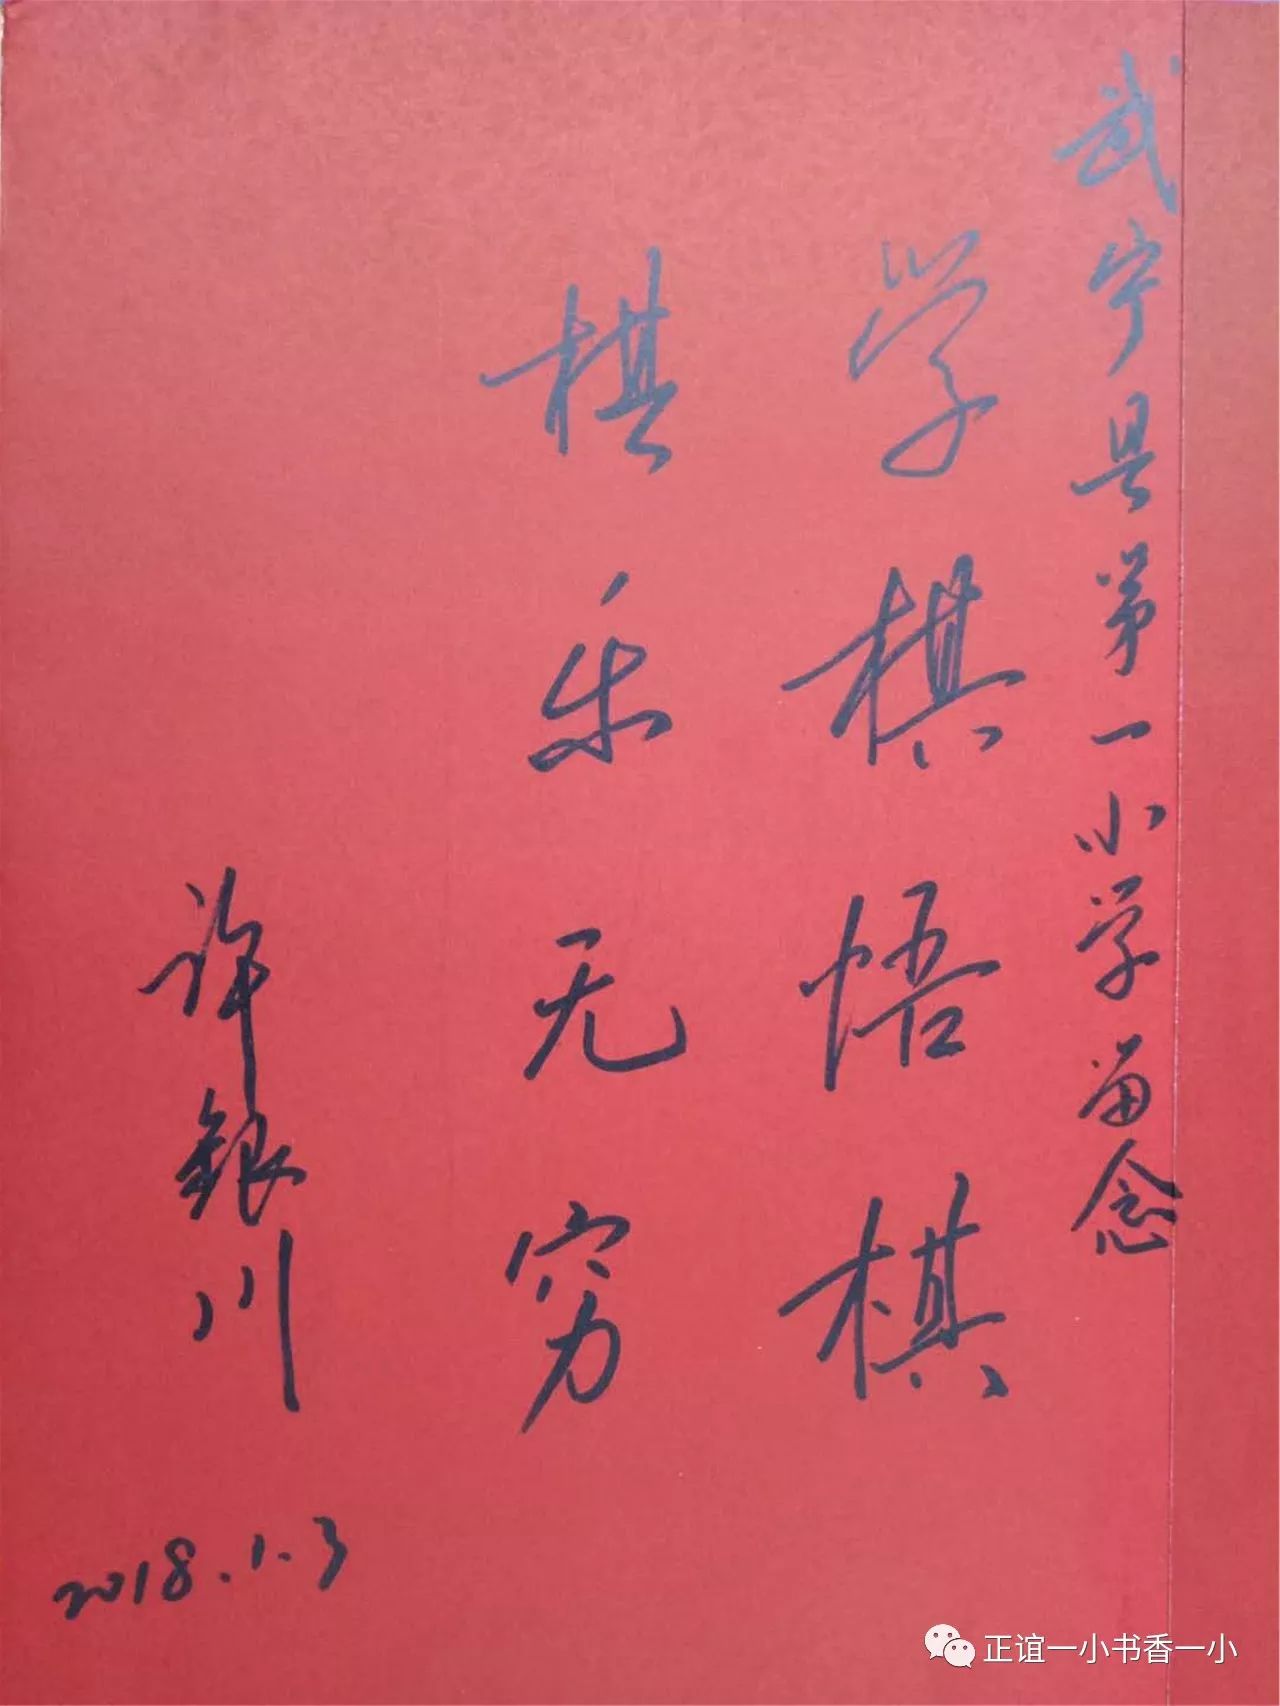 武宁县第一小学留念
学棋悟棋
棋乐无穷
许銀川
2018.1.3
正谊一小书香一小